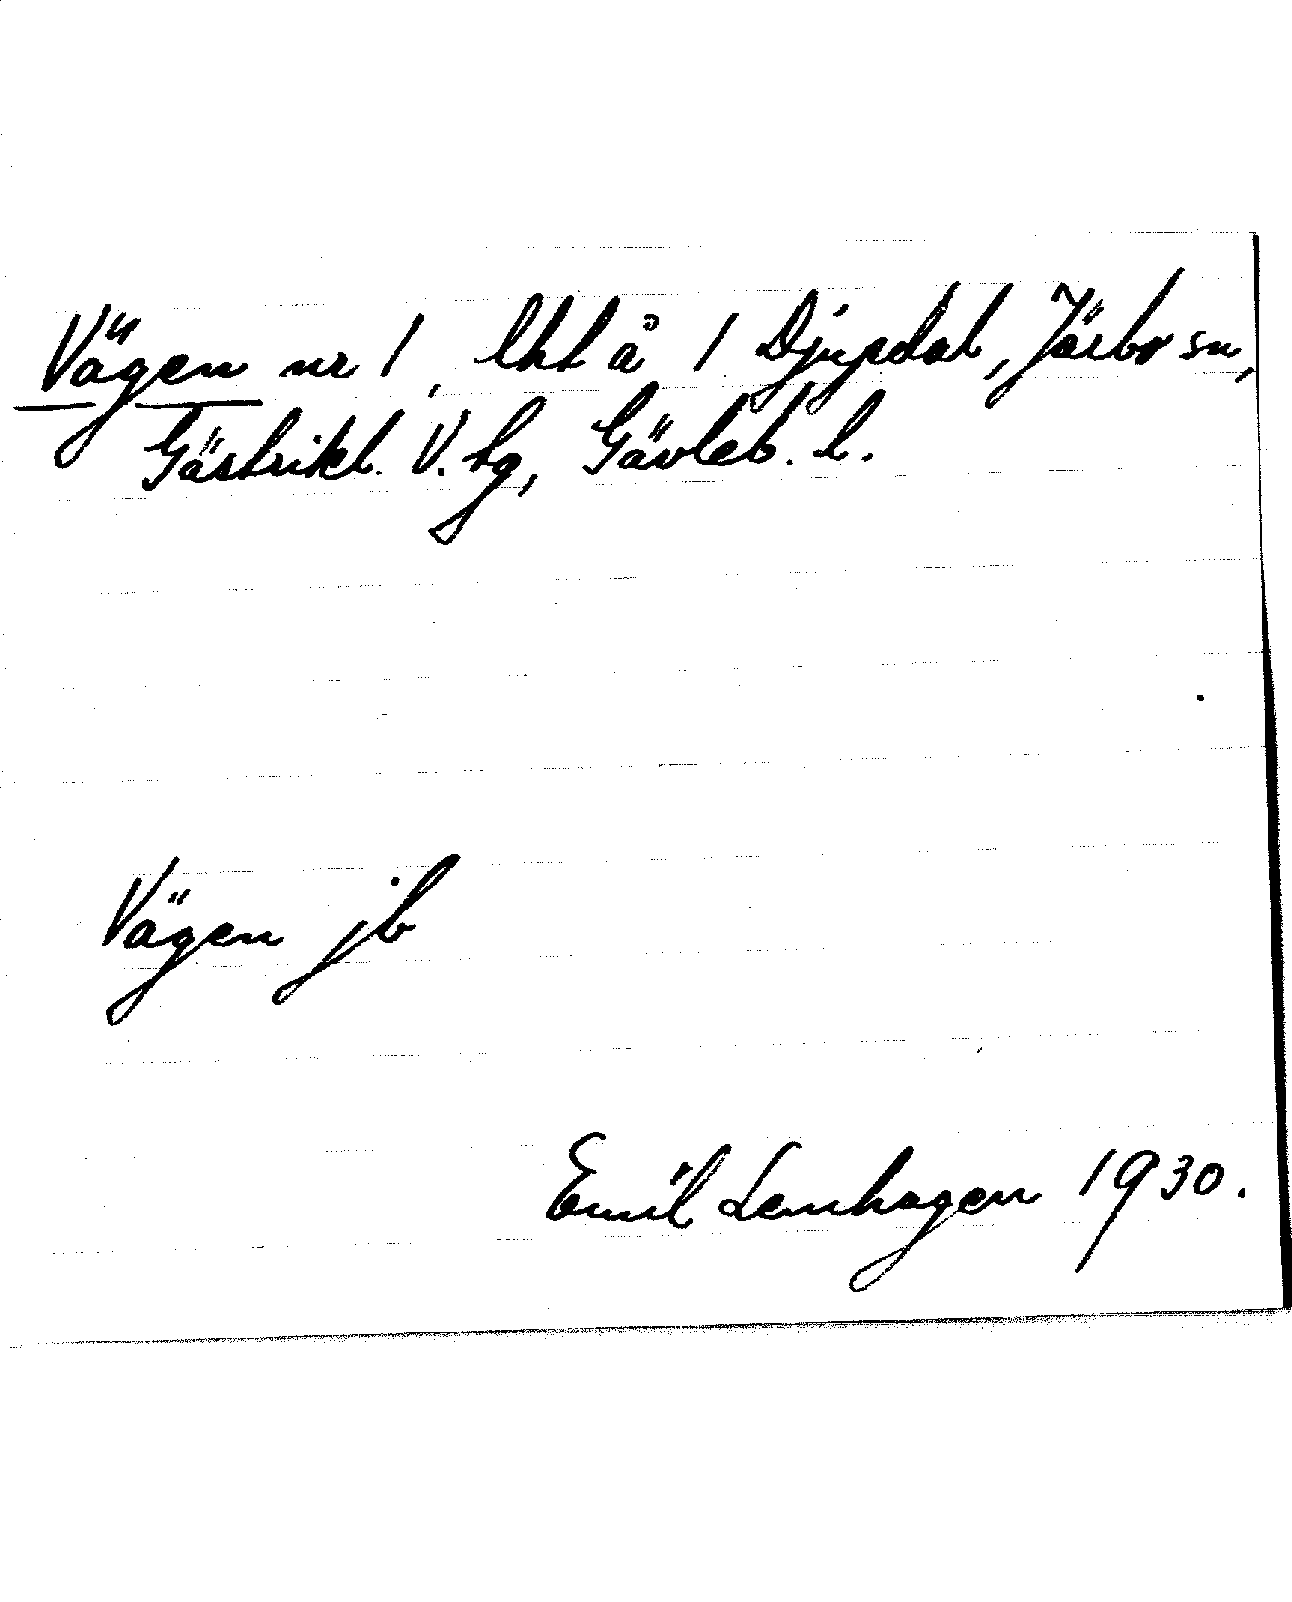 Vägen nr 1, lht å 1 Djupdal, Järbo sn,
Gästrikl. V. tg, Gävleb. l.
Vägen jb
Emil Lenhagen 1930.